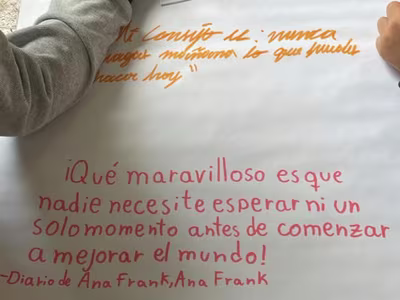 "Mi consejo es: nunca
hagas mañana lo que puedes
hacer hoy"
¡Qué maravilloso es que
nadie necesite esperar ni un
solo momento antes de comenzar
a mejorar el mundo!
-Diario de Ana Frank, Ana Frank